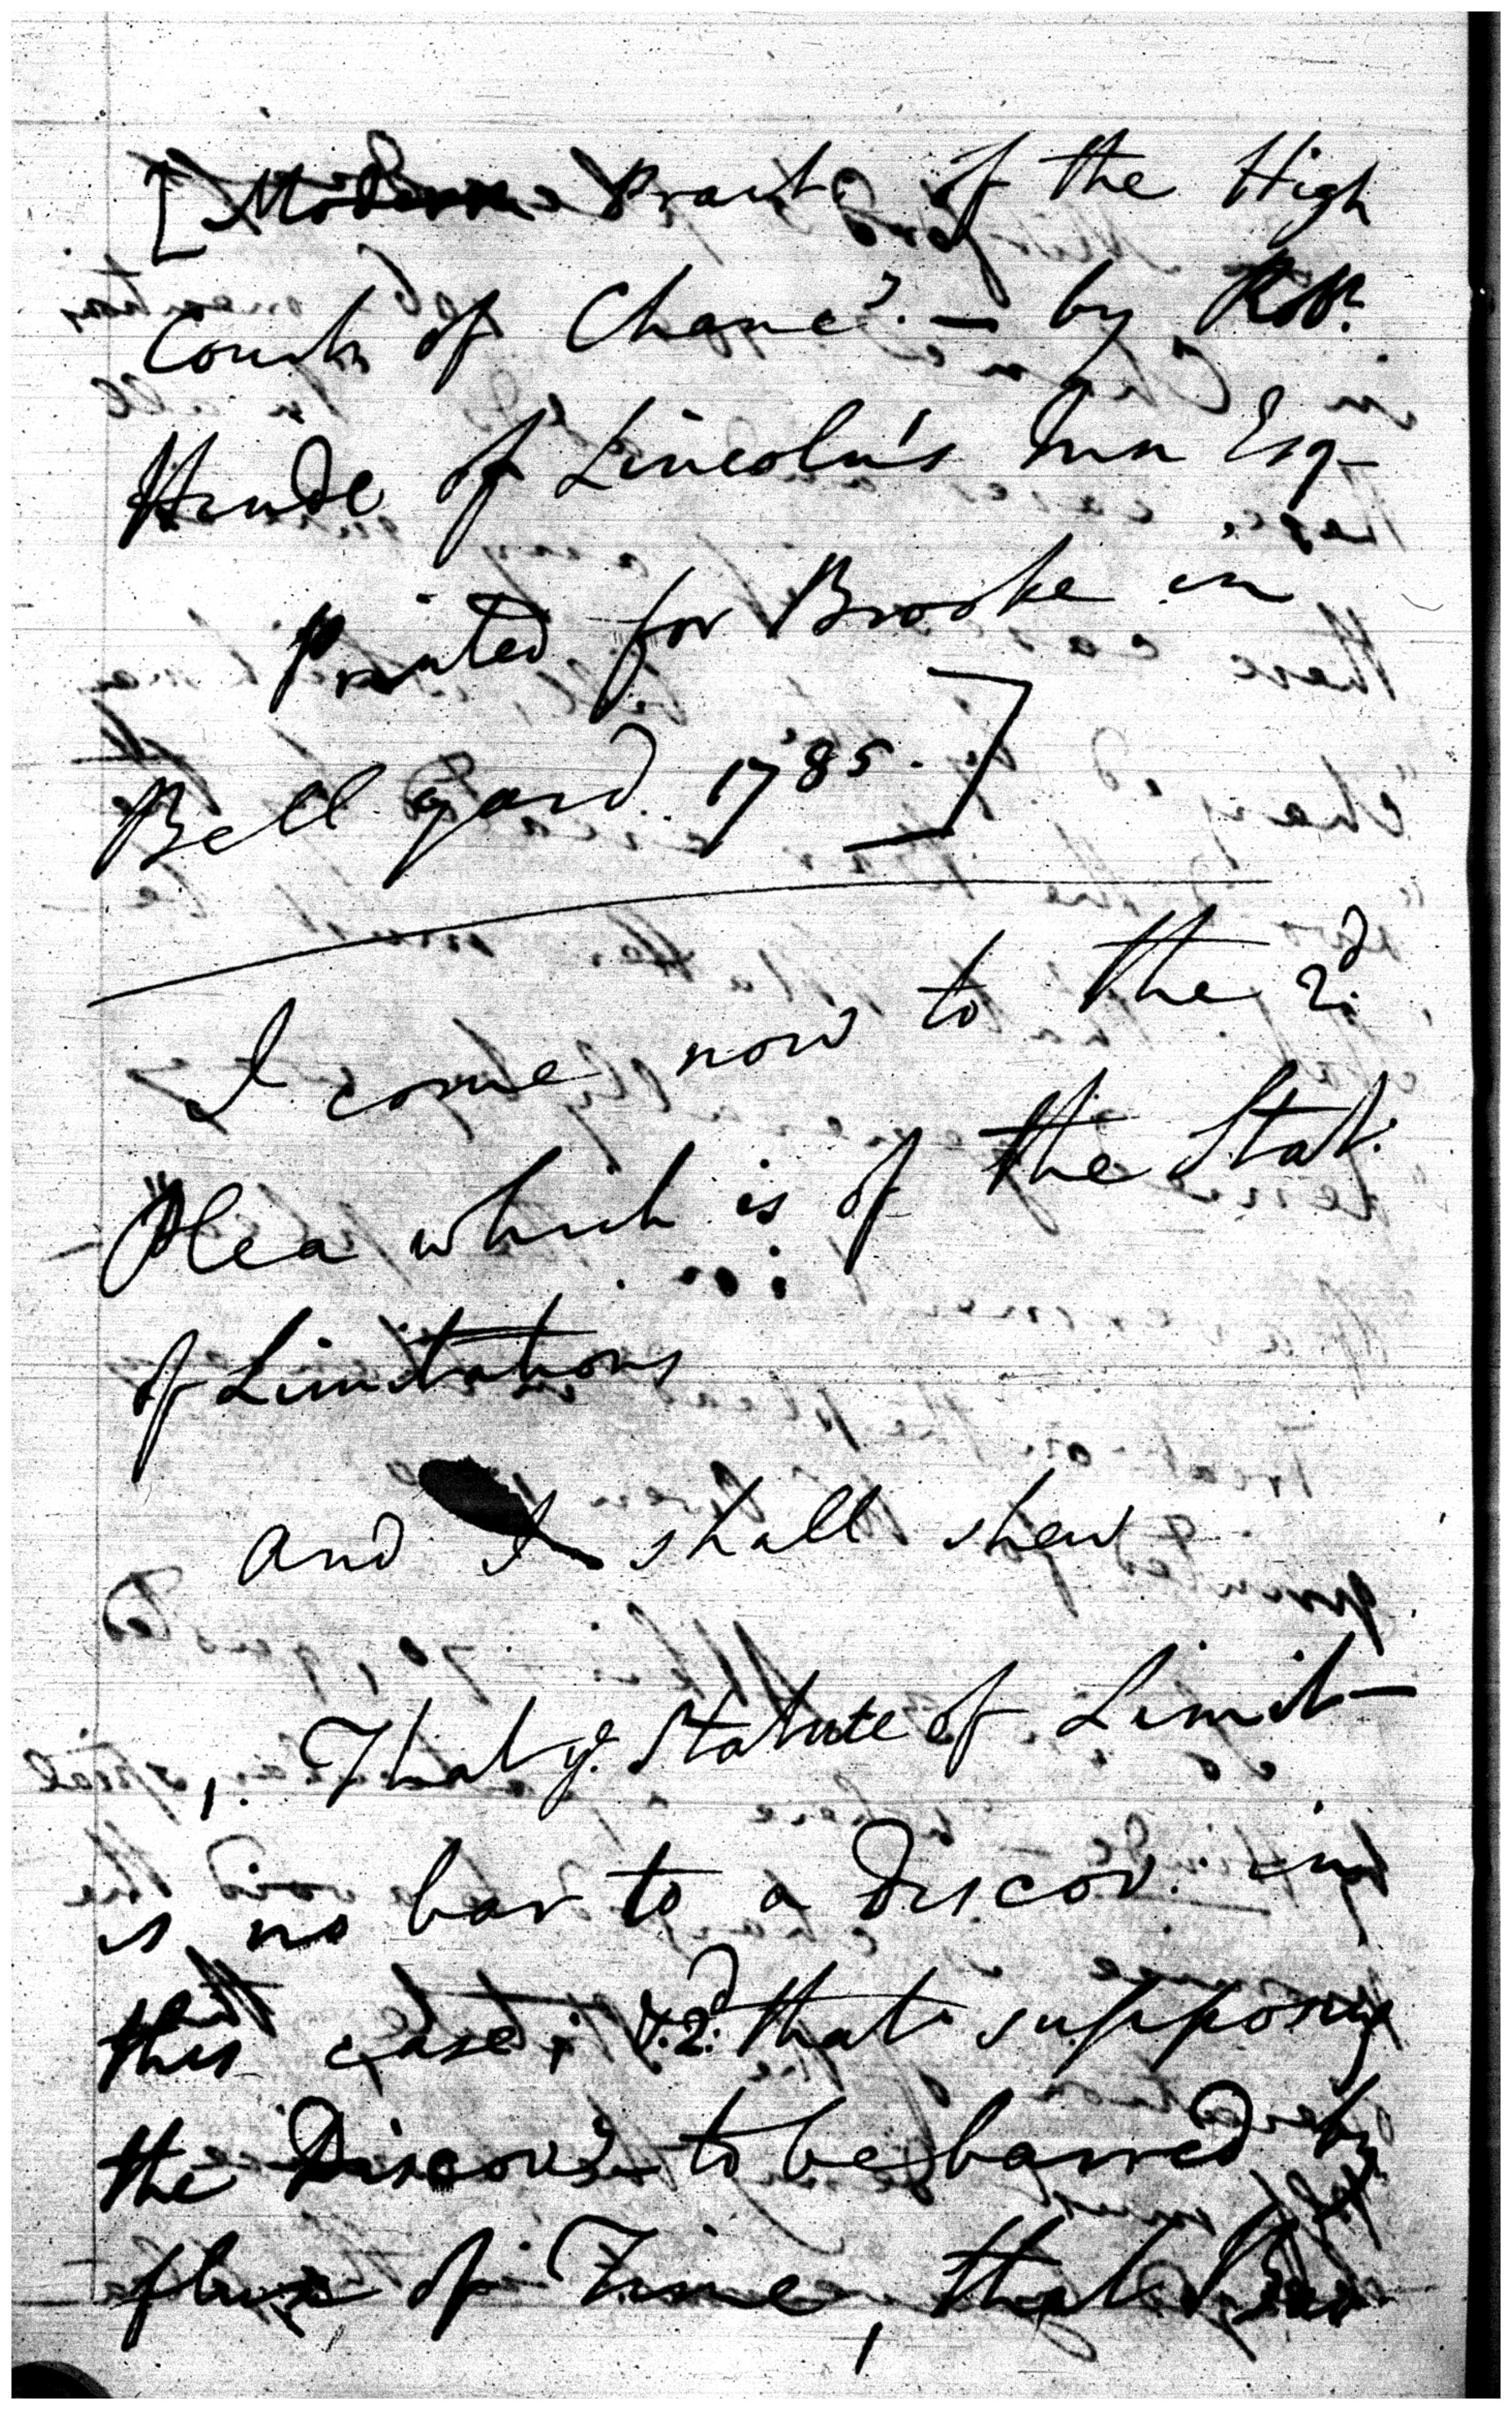 [Modern Pract. of the High
Court of Chanc.y — by Rob.t
Hinde of Lincoln's Inn Esq
Printed for Brooke in
Bell yard. 1785.]
I come now to the 2.d
Plea which is of the Stat.
of Limitations
and I shall shew
1. That y.e Statute of Limit—
is no bar to a Discov. in
this case; & 2.d that supposing
the Discov.y to be barred by
flux of Time, that